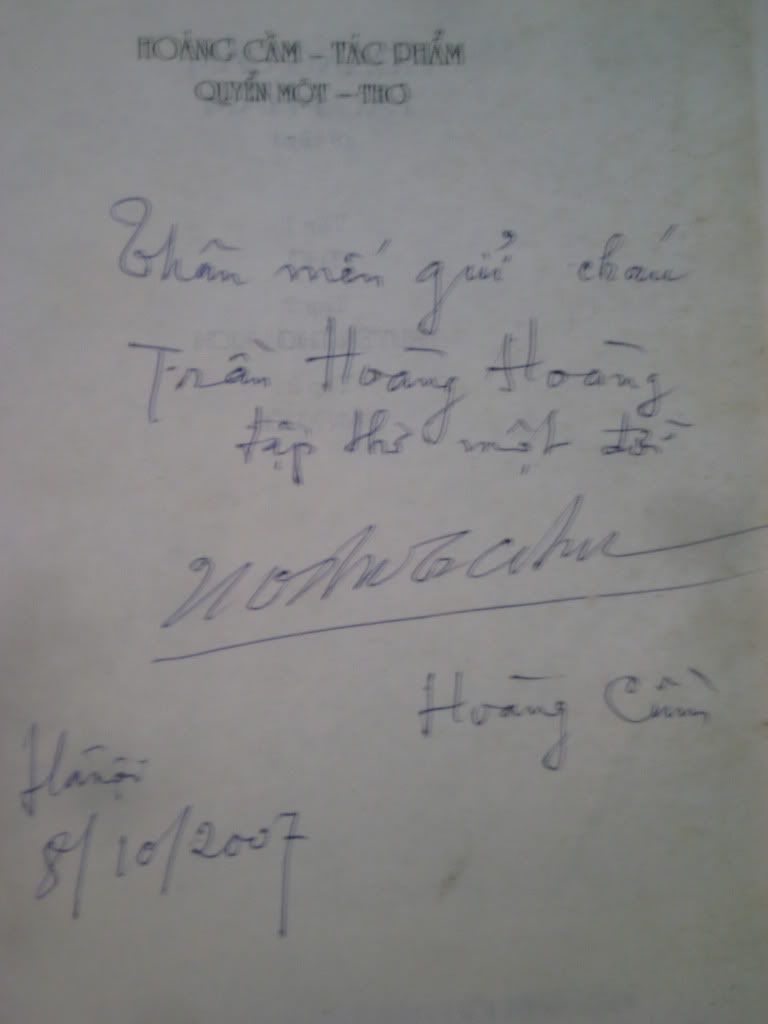 HOÀNG CẦM – TÁC PHẨM
QUYỂN MỘT – THƠ
Thân mến gửi cháu
Trần Hoàng Hoàng
tập thơ một đời
Hoàng Cầm
Hà nội
8/10/2007